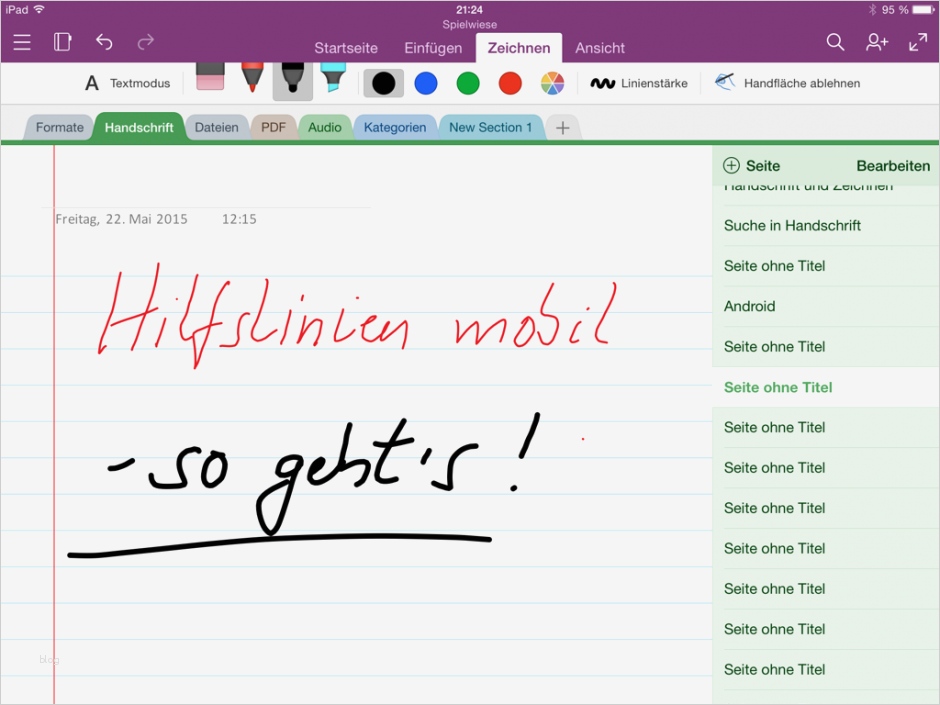 iPad 21:24 95 %
Spielwiese
Startseite Einfügen Zeichnen Ansicht
A Textmodus Linienstärke Handfläche ablehnen
Formate Handschrift Dateien PDF Audio Kategorien New Section 1 +
Seite Bearbeiten
Handschrift und Zeichnen
Freitag, 22. Mai 2015 12:15
Suche in Handschrift
Seite ohne Titel
Android
Seite ohne Titel
Seite ohne Titel
Seite ohne Titel
Seite ohne Titel
Seite ohne Titel
Seite ohne Titel
Seite ohne Titel
Seite ohne Titel
Seite ohne Titel
Hilfslinien mobil
- so geht's !
blog